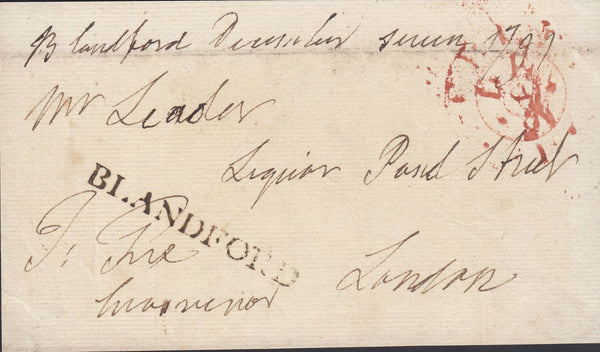 Blandford December seven 1797
Mr Leader
Liquor Pond Street
BLANDFORD
Free
Grosvenor
London